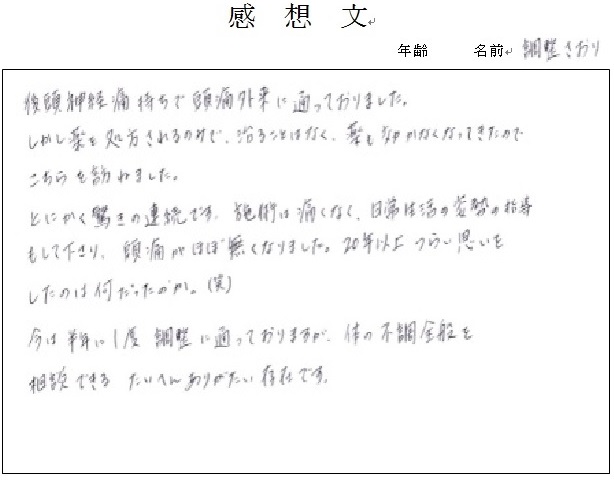 感想文
年齢 名前 調整さおり
後頭神経痛持ちで頭痛外来に通っておりました。
しかし薬を処方されるのみで、治ることはなく、薬もなかなかなくなってきたので
こちらを訪ねました。
とにかく驚きの連続です。施術は痛くなく、日常生活の姿勢の指導
もして下さり、頭痛がほぼ無くなりました。20年以上つらい思いを
したのは何だったのか。(笑)
今は半年に1度調整に通っておりますが、体の不調全般を
相談できるたいへんありがたい存在です。